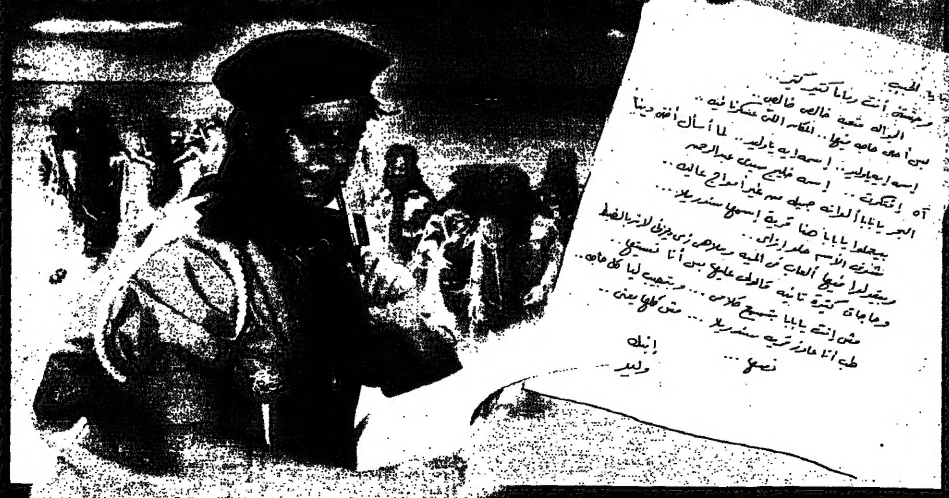 بابا الحبيب.
وحشتنى أنت وماما كتير كتير..
الرحله متعبة خالص خالص..
بس أحلى حاجه فيها.. المكان اللى عسكرنا فيه..
إسمه إيه ياوليد.. إسمه إيه ياوليد.. لما أسأل أختى دينا
آه إفتكرت... إسمه خليج سيدى عبد الرحمن
البحر يابابا ألوانه جميله من غير أمواج عاليه..
بيعملوا يابابا هنا قرية إسمها سندريلا...
شفت الأسم حلو إزاى..
وبيقولوا فيها ألعاب فى الميه وملاهى زى ديزنى لاند بالضبط
وحاجات كتيرة تانيه قالولى عليها بس أنا نسيتها..
مش إنت يابابا بتسمع كلامى... وبتجيب ليا كل حاجه..
طب أنا عاوز قرية سندريلا... مش كلها يعنى..
نصها...
إبنك
وليد